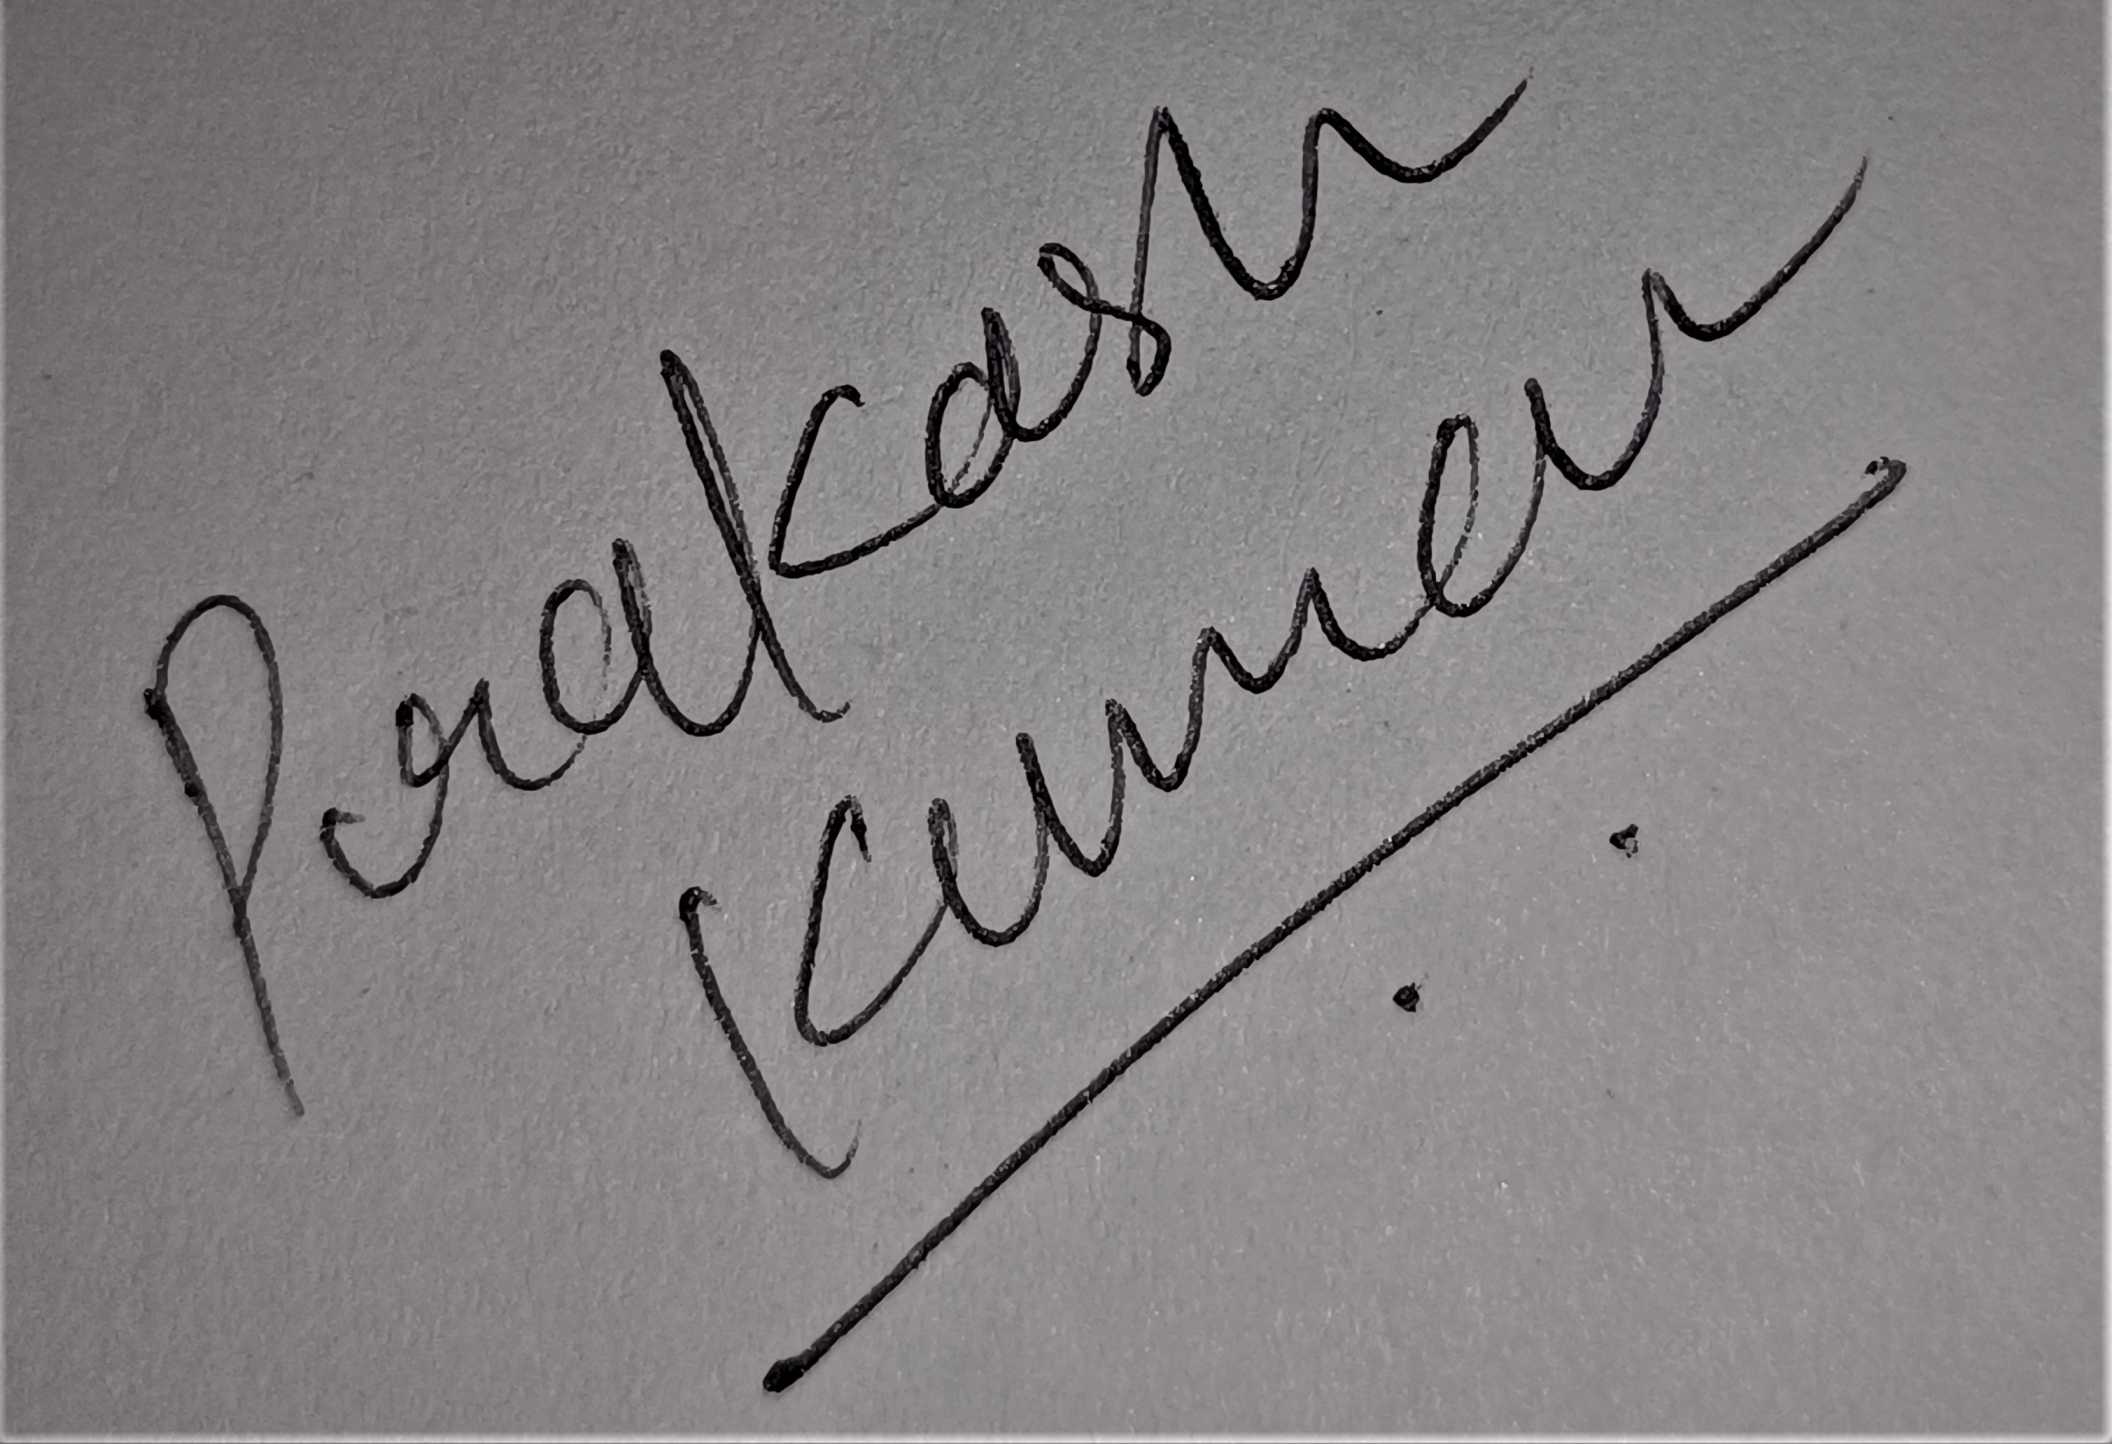 Prakash
Kumar